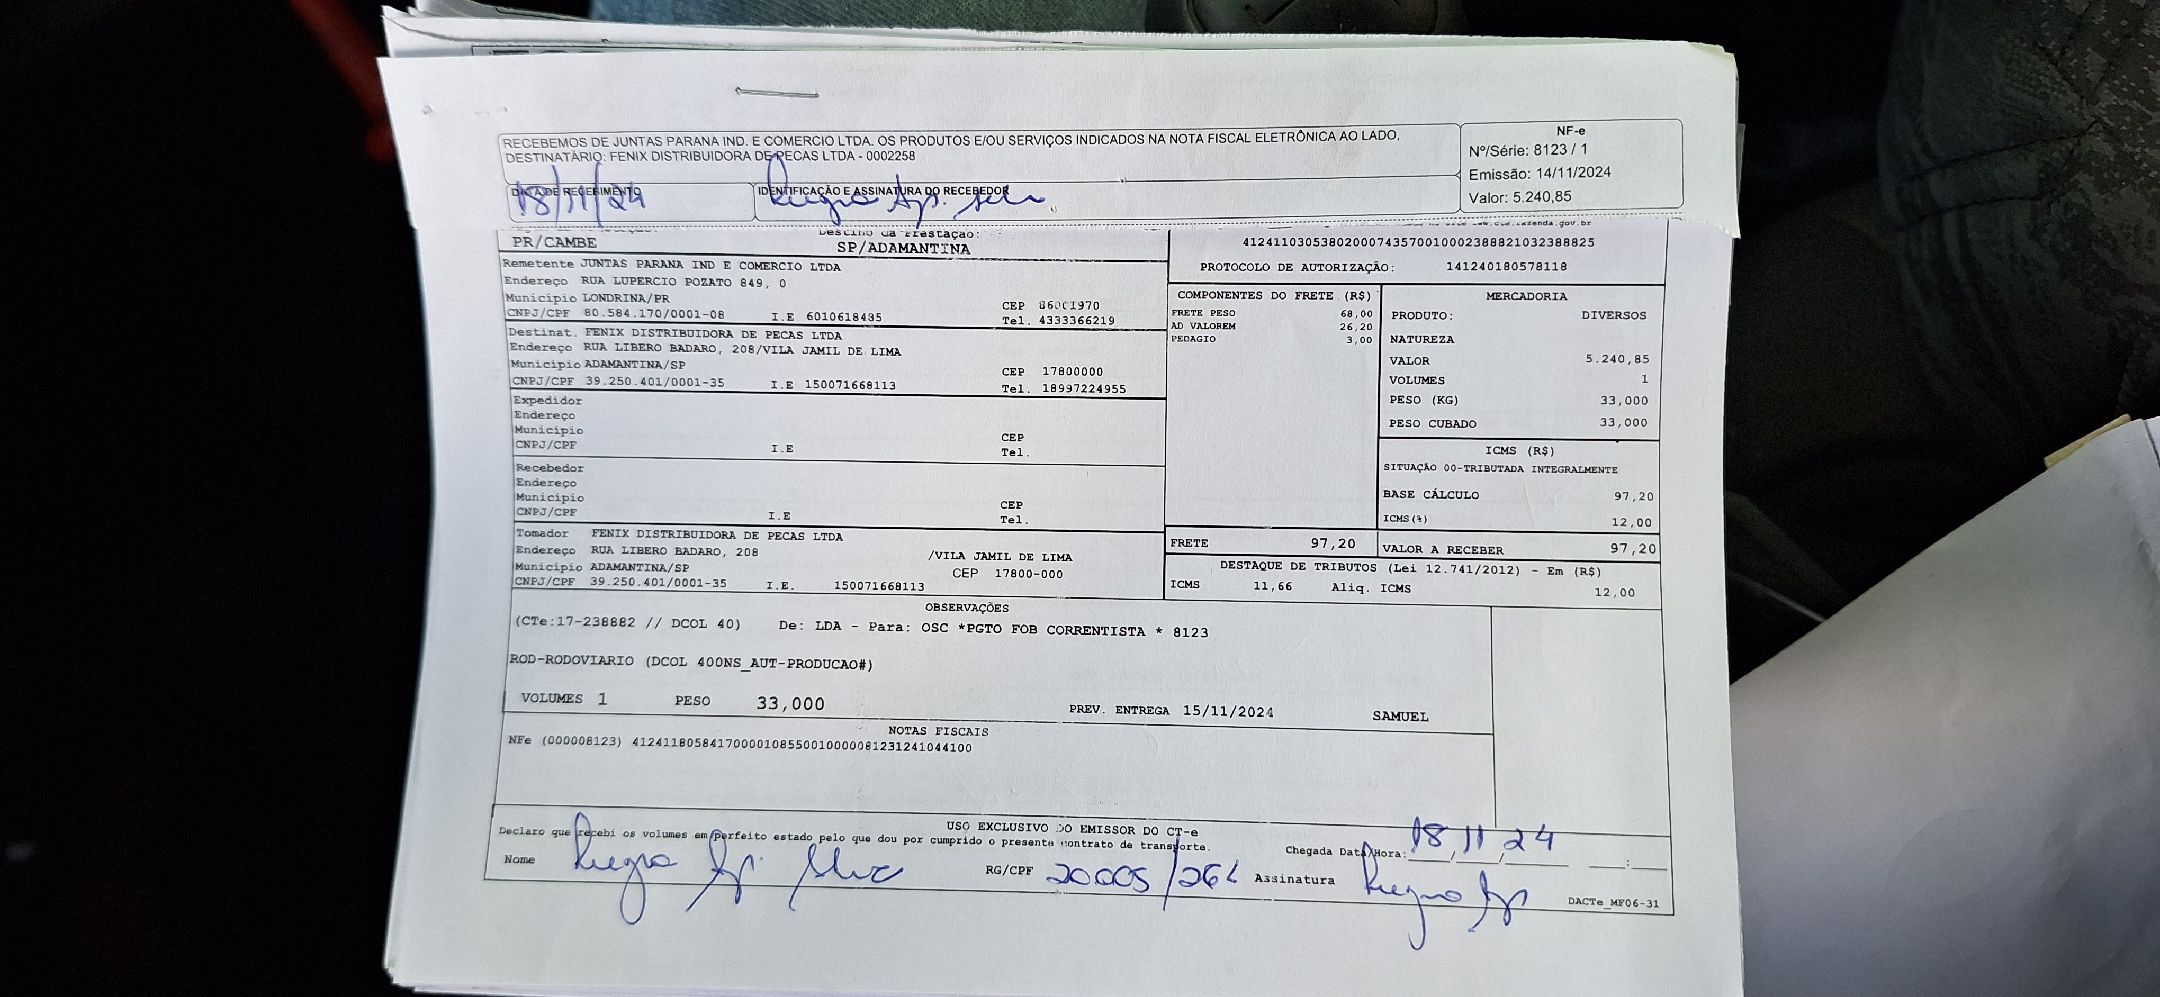 RECEBEMOS DE JUNTAS PARANA IND. E COMERCIO LTDA. OS PRODUTOS E/OU SERVIÇOS INDICADOS NA NOTA FISCAL ELETRÔNICA AO LADO,
DESTINATÁRIO: FENIX DISTRIBUIDORA DE PECAS LTDA - 0002258
NF-e
Nº/Série: 8123 / 1
Emissão: 14/11/2024
Valor: 5.240,85
DATA DE RECEBIMENTO
18/11/24
IDENTIFICAÇÃO E ASSINATURA DO RECEBEDOR
Destino da Prestação:
PR/CAMBE
SP/ADAMANTINA
Remetente JUNTAS PARANA IND E COMERCIO LTDA
Endereço RUA LUPERCIO POZATO 849, 0
Município LONDRINA/PR
CEP 86001970
CNPJ/CPF 80.584.170/0001-08 I.E 6010618435 Tel. 4333366219
Destinat. FENIX DISTRIBUIDORA DE PECAS LTDA
Endereço RUA LIBERO BADARO, 208/VILA JAMIL DE LIMA
Município ADAMANTINA/SP CEP 17800000
CNPJ/CPF 39.250.401/0001-35 I.E 150071668113 Tel. 18997224955
Expedidor
Endereço
Município CEP
CNPJ/CPF I.E Tel.
Recebedor
Endereço
Município CEP
CNPJ/CPF I.E Tel.
Tomador FENIX DISTRIBUIDORA DE PECAS LTDA
Endereço RUA LIBERO BADARO, 208 /VILA JAMIL DE LIMA
Município ADAMANTINA/SP CEP 17800-000
CNPJ/CPF 39.250.401/0001-35 I.E. 150071668113
41241103053802000743570010002388821032388825
PROTOCOLO DE AUTORIZAÇÃO: 141240180578118
COMPONENTES DO FRETE (R$)
FRETE PESO 68,00
AD VALOREM 26,20
PEDAGIO 3,00
MERCADORIA
PRODUTO: DIVERSOS
NATUREZA
VALOR 5.240,85
VOLUMES 1
PESO (KG) 33,000
PESO CUBADO 33,000
ICMS (R$)
SITUAÇÃO 00-TRIBUTADA INTEGRALMENTE
BASE CÁLCULO 97,20
ICMS(%) 12,00
FRETE 97,20
VALOR A RECEBER 97,20
DESTAQUE DE TRIBUTOS (Lei 12.741/2012) - Em (R$)
ICMS 11,66 Aliq. ICMS 12,00
OBSERVAÇÕES
(CTe:17-238882 // DCOL 40) De: LDA - Para: OSC *PGTO FOB CORRENTISTA * 8123
ROD-RODOVIARIO (DCOL 400NS_AUT-PRODUCAO#)
VOLUMES 1 PESO 33,000 PREV. ENTREGA 15/11/2024 SAMUEL
NOTAS FISCAIS
NFe (000008123) 41241180584170000108550010000081231241044100
USO EXCLUSIVO DO EMISSOR DO CT-e
Declaro que recebi os volumes em perfeito estado pelo que dou por cumprido o presente contrato de transporte.
Chegada Data/Hora: 18 11 24
Nome
RG/CPF
Assinatura
DACTe_MF06-31